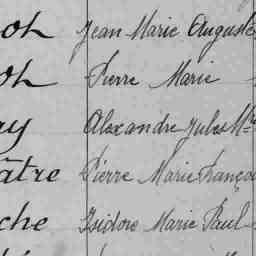 oh Jean Marie Auguste
oh Pierre Marie
ry Alexandre Jules Mie
âtre Pierre Marie François
che Isidore Marie Paul